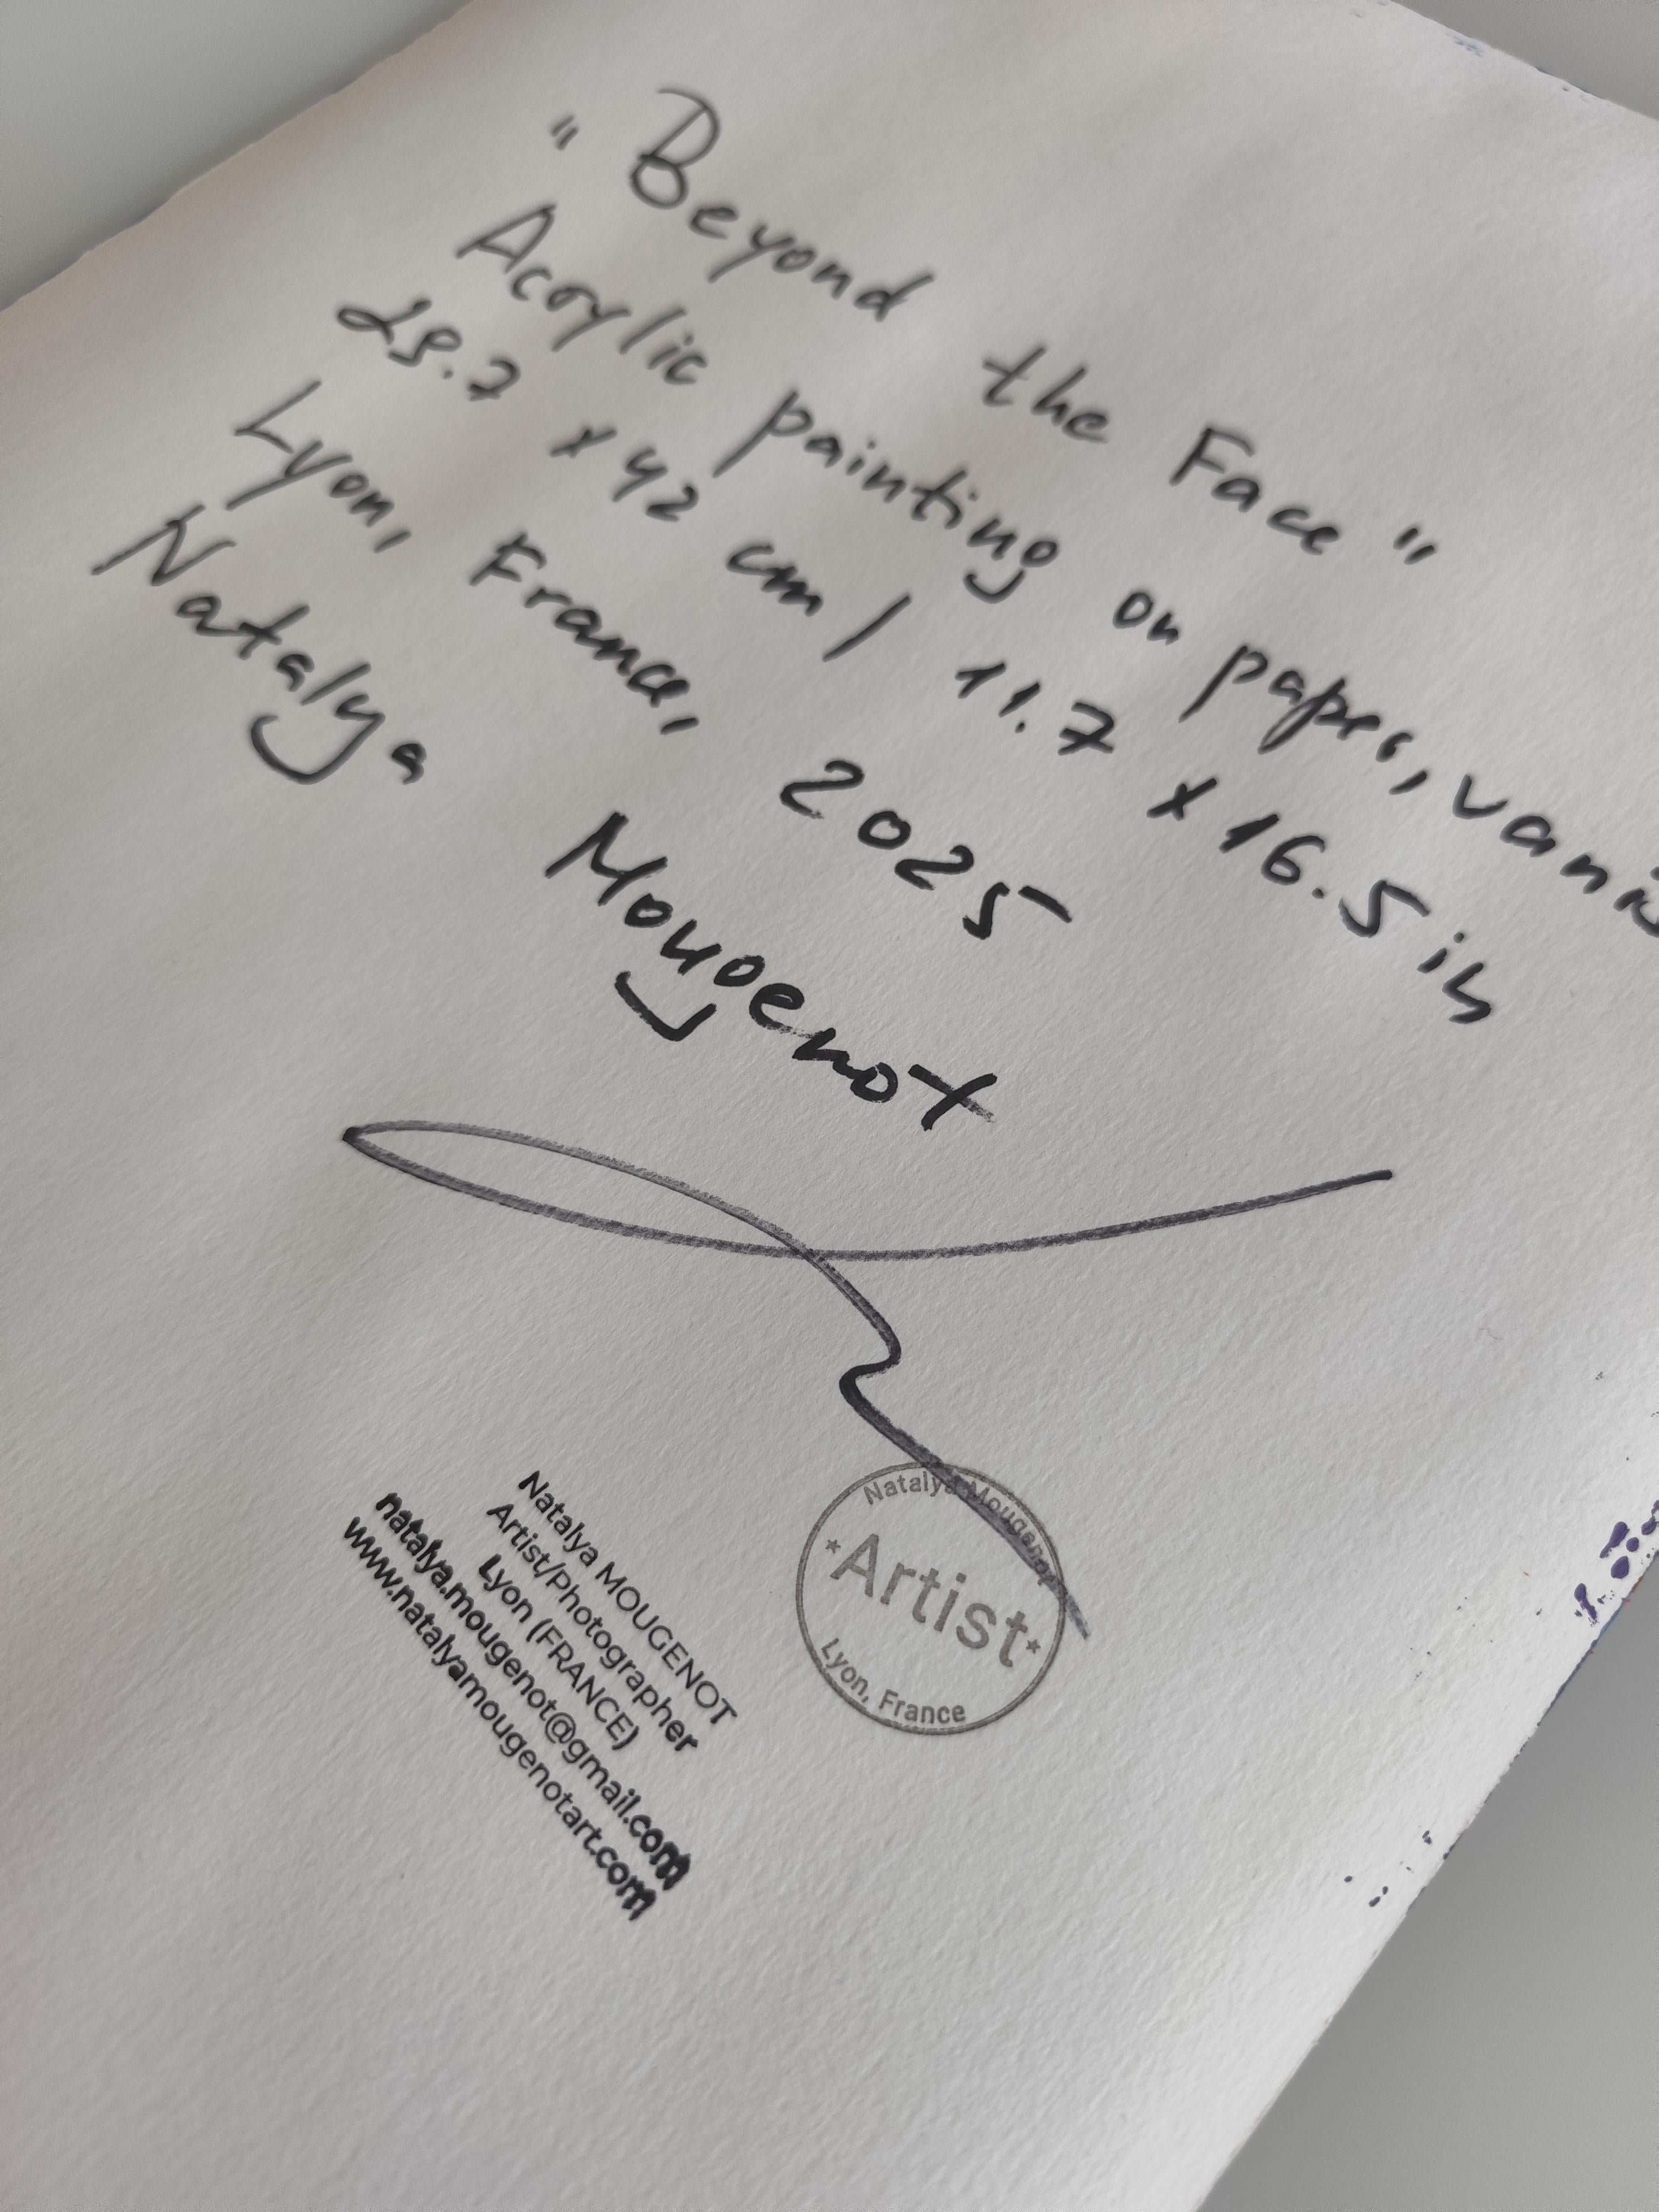 "Beyond the Face"
Acrylic painting on paper,
29.7 x 42 cm / 11.7 x 16.5 in
Lyon, France, 2025
Natalya Mougenot
Natalya MOUGENOT
Artist/Photographer
Lyon (FRANCE)
natalya.mougenot@gmail.com
www.natalyamougenotart.com
Natalya Mougenot
Artist
Lyon, France